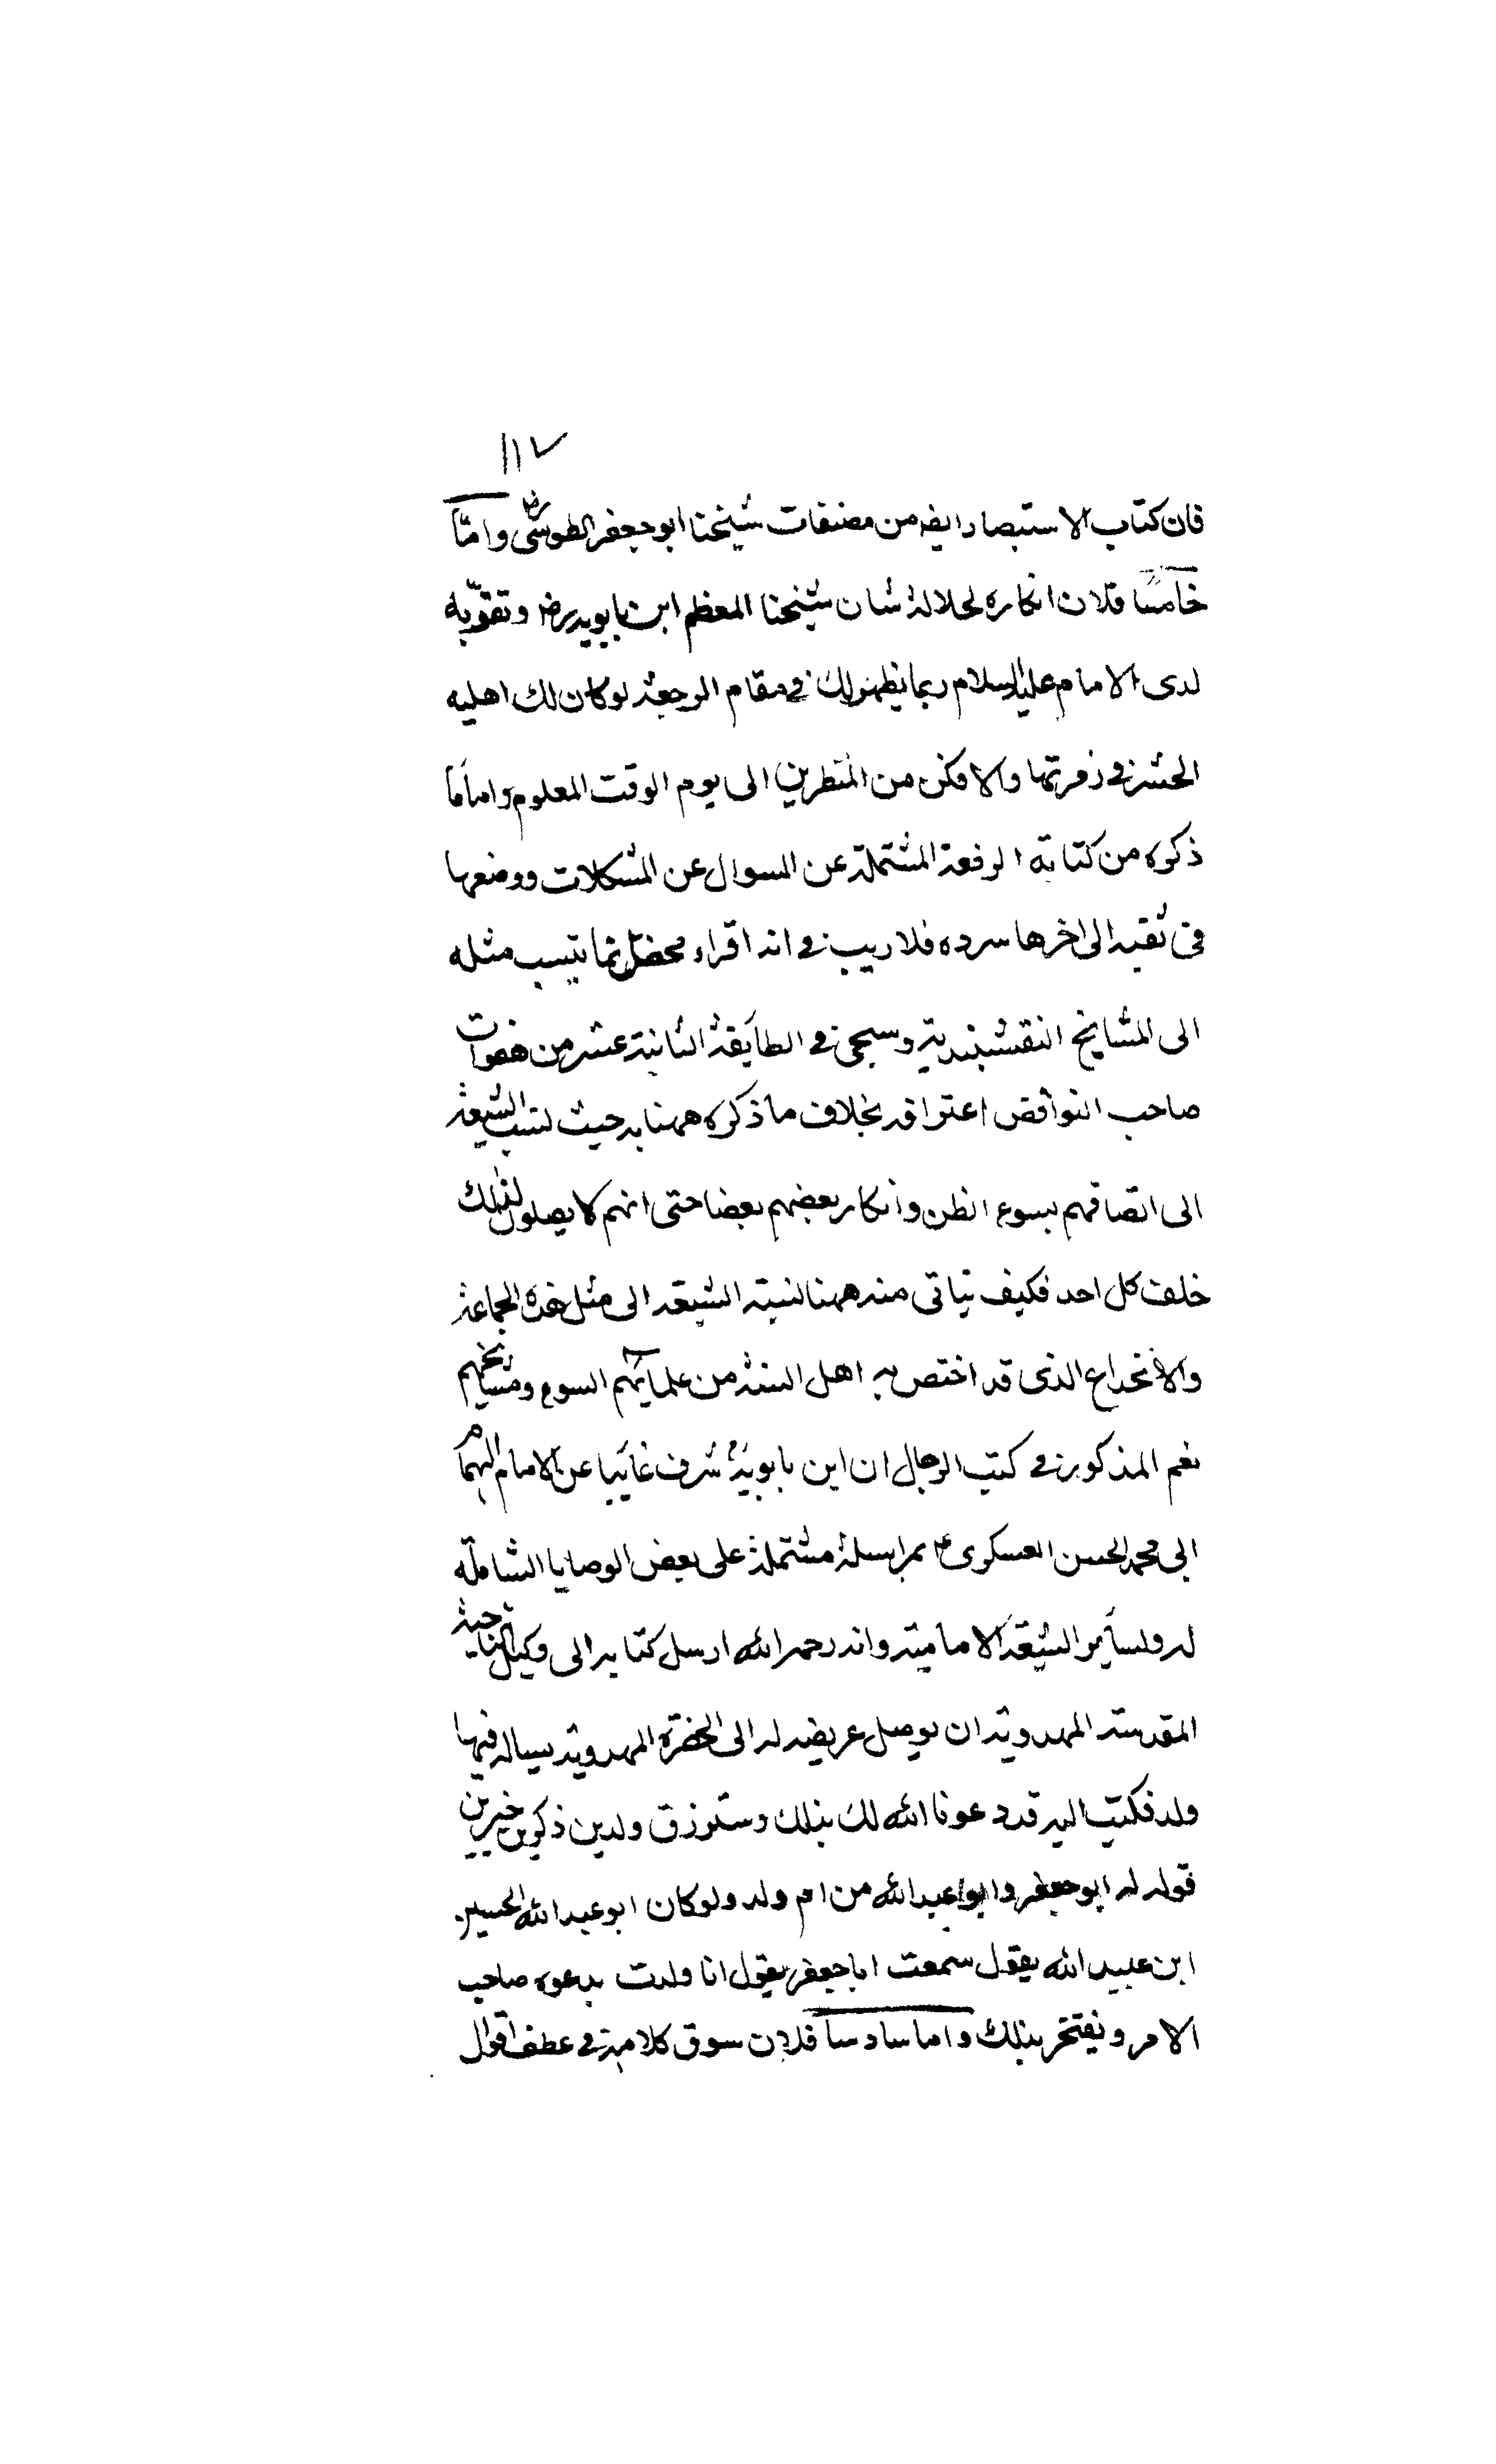 ١١٧
فان كتاب الاستبصار ايضه من مصنفات شيخنا ابو جعفر الطوسى رض واما
خامسا فلان انكاره لجلالة شان شيخنا المعظم ابن بابويه رض وتقوّبه
لدى الامام عليه السلام ربما يظهر لك فى مقام الرجعة لو كان لك اهلية
الحشر فى زمرتها والا فكن من المنتظرين الى يوم الوقت المعلوم واما ما
ذكره من كتابة الرقعة المشتملة عن السوال عن المشكلات ووضعها
فى ثقبه الى اخرها سرده فلا ريب فى انه افراء محض انما ينسب مثله
الى المشايخ النقشبندية وسيجى فى الطايفة الثانية عشر من هفوات
صاحب النواقض اعترافه بخلاف ما ذكره ههنا به حيث نسب الشيعة
الى اتصافهم بسوء الظن وانكار بعضهم بعضا حتى انهم لا يصلون لذلك
خلف كل احد فكيف يتاتى منه ههنا نسبة الشيعه الى مثل هذه الجماعة
والانخداع الذى قد اختص به اهل السنة من علمايهم السوء ومشايخهم
نعم المذكور فى كتب الرجال ان ابن بابويه شرف غايبا عن الامام الهمام
ابى محمد الحسن العسكرى ع بمراسلة مشتملة على بعض الوصايا الشاملة
له ولساير الشيعة الامامية وانه رحمه الله ارسل كتابه الى وكيل الناحية
المقدسة المهدوية ان يوصل عريضه له الى الحضرة المهدوية يساله فيها
ولد فكتب اليه قد دعونا الله لك بذلك وسترزق ولدين ذكرين خيرين
فولد له ابو جعفر وابو عبد الله من ام ولد ولو كان ابو عبد الله الحسين
ابن عبيد الله يقول سمعت ابا جعفر يقول انا ولدت بدعوه صاحب
الامر ويفتخر بذلك واما سادسا فلان سوق كلامه فى عطف اقوال